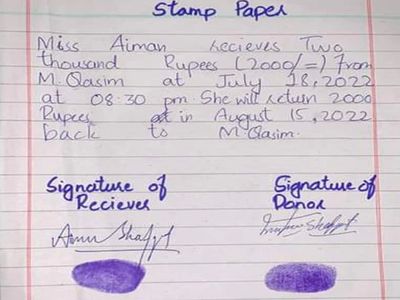 Stamp Paper
Miss Aiman recieves Two
thousand Rupees (2000/=) from
M.Qasim at July 18,2022
at 08:30 pm. She will return 2000
Rupees in August 15,2022
back to M.Qasim.
Signature of Reciever
Signature of Donor